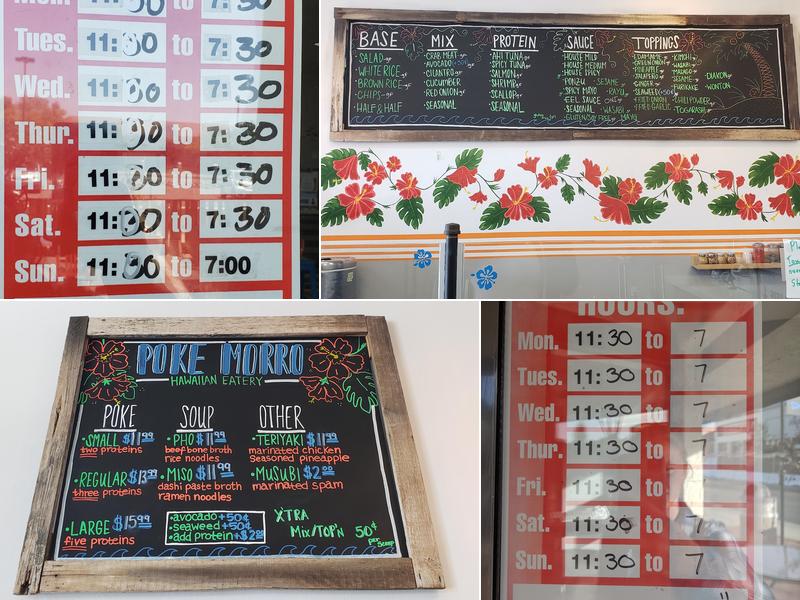 Mon.
Tues. 11:30 to 7:30
Wed. 11:30 to 7:30
Thur. 11:30 to 7:30
Fri. 11:30 to 7:30
Sat. 11:30 to 7:30
Sun. 11:30 to 7:00
BASE
SALAD gf
WHITE RICE gf
BROWN RICE gf
CHIPS
HALF & HALF
MIX
CRAB MEAT
AVOCADO +50¢
CILANTRO
CUCUMBER
RED ONION
SEASONAL
PROTEIN
AHI TUNA
SPICY TUNA
SALMON
SHRIMP
SCALLOP
SEASONAL
SAUCE
HOUSE MILD
HOUSE MEDIUM
HOUSE SPICY
PONZU SESAME
SPICY MAYO
EEL SAUCE
SEASONAL WASABI
GLUTEN/SOY FREE MAYO
TOPPINGS
EDAMAME
GREEN ONION
PINEAPPLE
JALAPEÑO
GINGER
SEAWEED +50¢
FRIED ONION
FRIED GARLIC
KIMCHI
WASABI
MASAGO
SESAME
FURIKAKE
CHILI POWDER
TOGARASHI
DIAKON
WONTON
POKE MORRO
HAWAIIAN EATERY
POKE
•SMALL $11.99
two proteins
•REGULAR $13.99
three proteins
•LARGE $15.99
five proteins
SOUP
•PHO $11.99
beef bone broth
rice noodles
•MISO $11.99
dashi paste broth
ramen noodles
OTHER
•TERIYAKI $11.99
marinated chicken
Seasoned pineapple
•MUSUBI $2.00
marinated spam
•avocado +50¢
•seaweed +50¢
•add protein +$2.00
XTRA
Mix/TOP'N 50¢
per scoop
HOURS:
Mon. 11:30 to 7
Tues. 11:30 to 7
Wed. 11:30 to 7
Thur. 11:30 to 7
Fri. 11:30 to 7
Sat. 11:30 to 7
Sun. 11:30 to 7